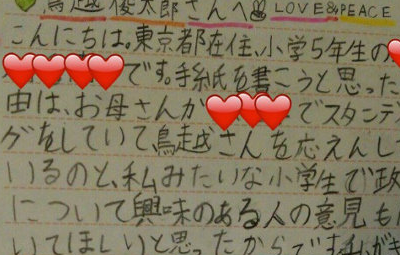 鳥越俊太郎さんへ LOVE&PEACE
こんにちは。東京都在住、小学5年生の
です。手紙を書こうと思った
由は、お母さんが でスタンデ
グをしていて鳥越さんを応えんし
いるのと、私みたいな小学生で政
について興味のある人の意見も
いてほしいと思ったからです。私が